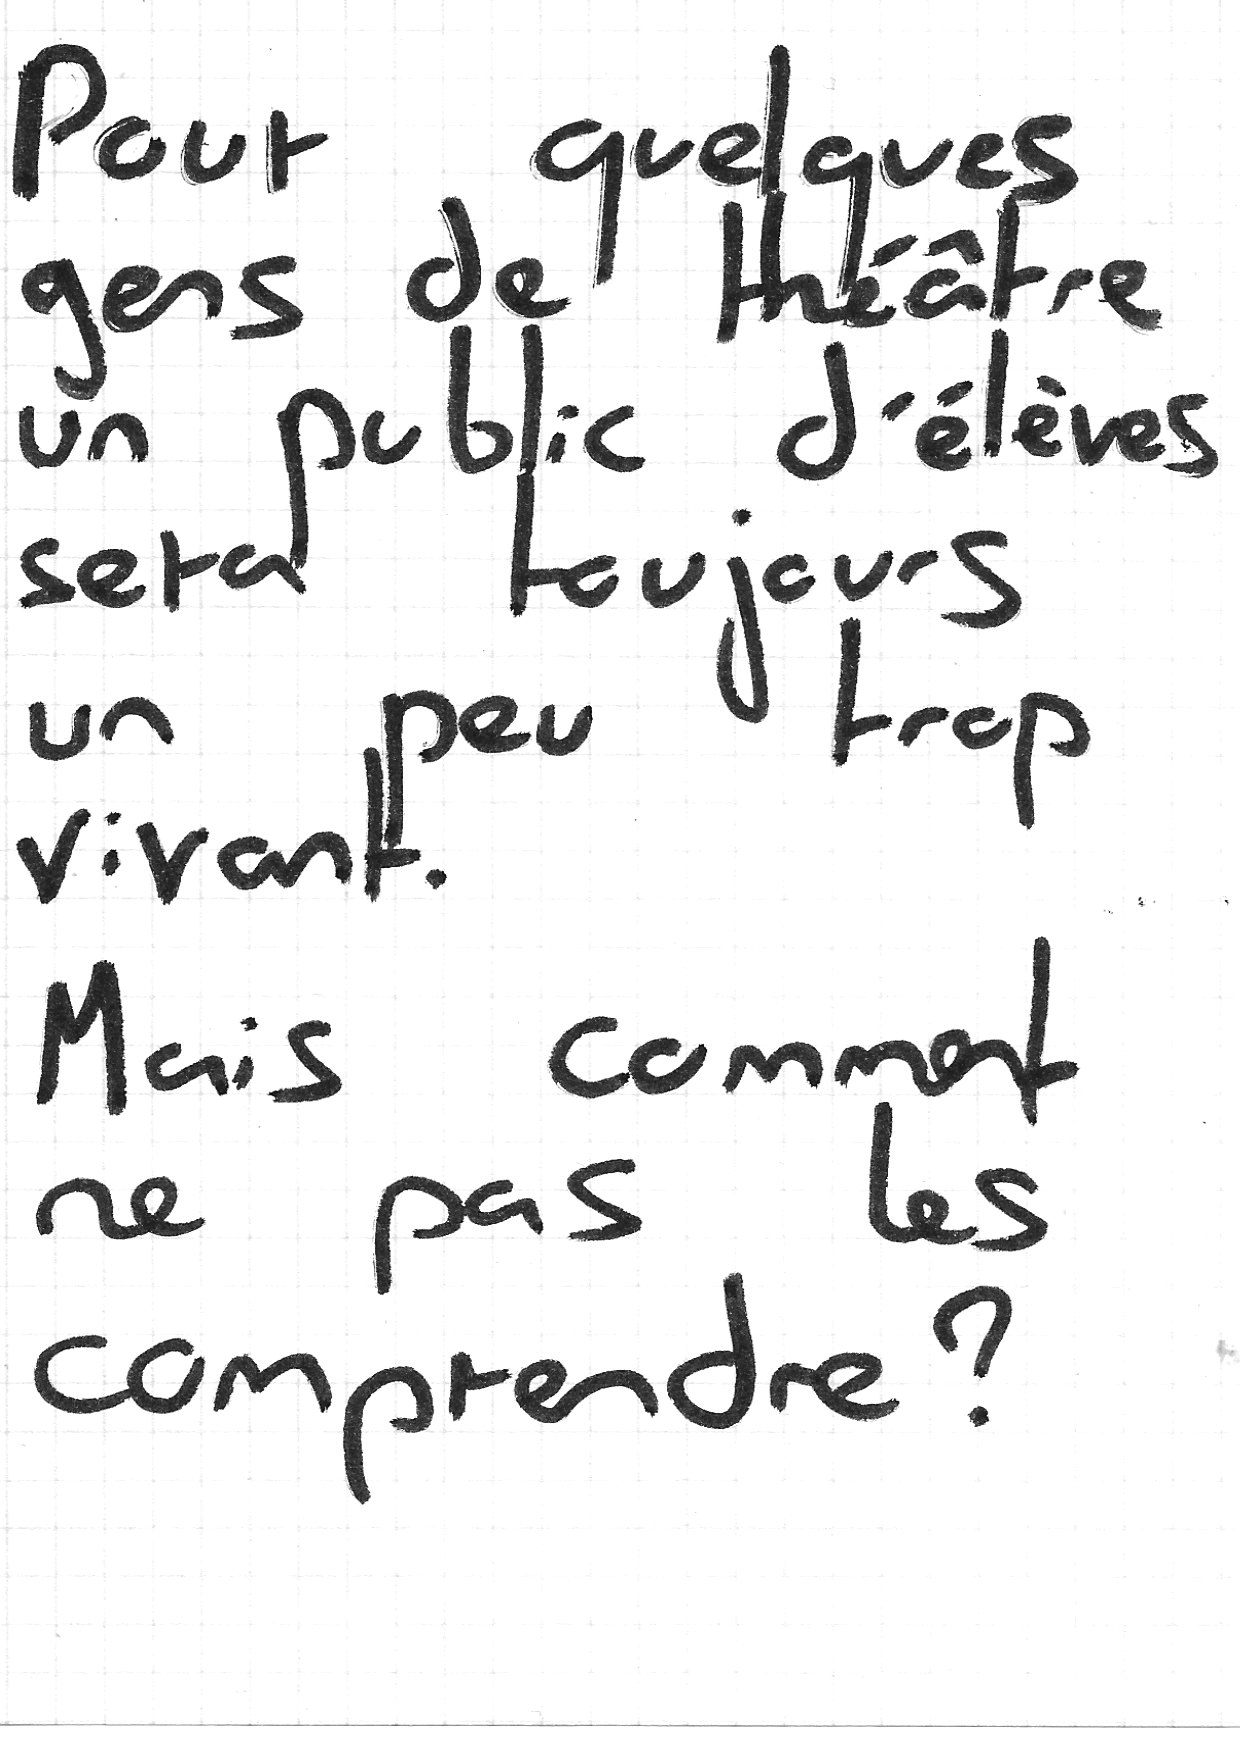 Pour quelques
gens de théâtre
un public d'élèves
sera toujours
un peu trop
vivant.
Mais comment
ne pas les
comprendre ?